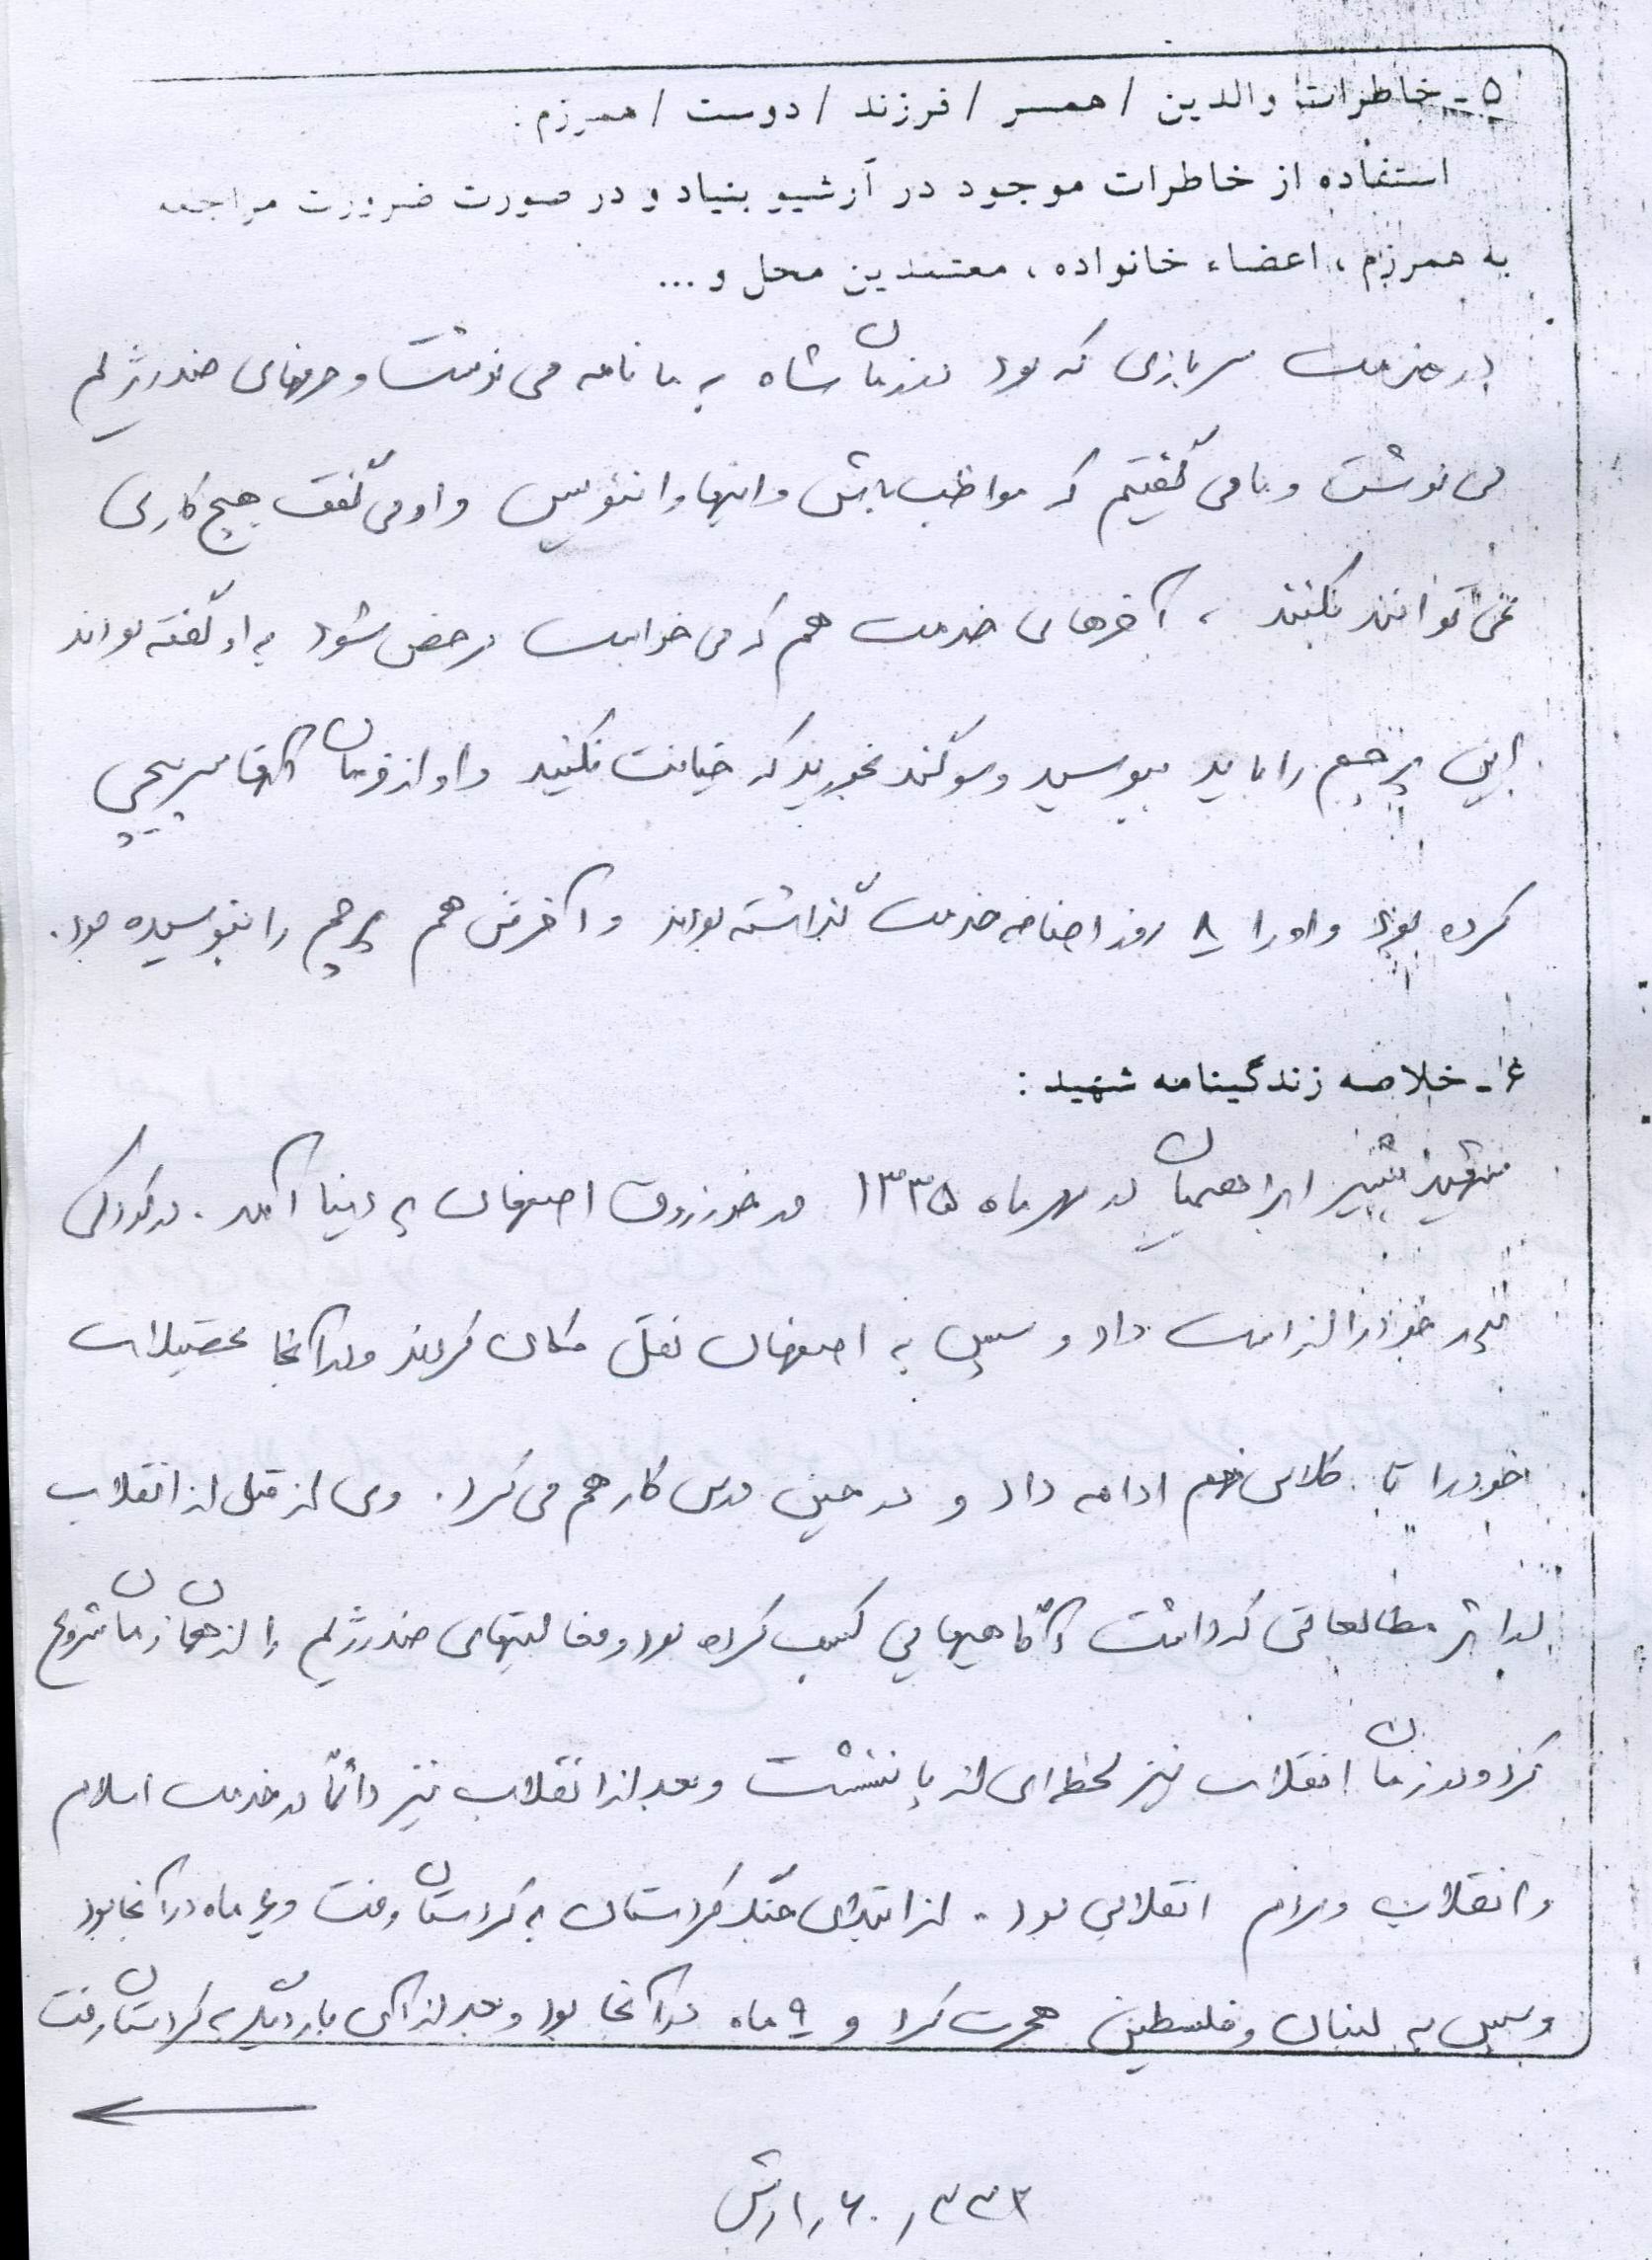 ۵ - خاطرات والدین / همسر / فرزند / دوست / همرزم :
استفاده از خاطرات موجود در آرشیو بنیاد و در صورت ضرورت مراجعه
به همرزم ، اعضاء خانواده ، معتمدین محل و ...
در خدمت سربازی که بود در زمان شاه به ما نامه می نوشت و حرفهای ضد رژیم
می نوشت و ما می گفتیم که مواظب باش و اینها را ننویس و او می گفت هیچ کاری
نمی توانند بکنند ، آخرهای خدمت هم که می خواست مرخص شود به او گفته بودند
این پرچم را باید ببوسید و سوگند بخورید که خیانت نکنید و او از فرمان آنها سرپیچی
کرده بود و او را ۸ روز اضافه خدمت گذاشته بودند و آخرش هم پرچم را نبوسیده بود .
۶ - خلاصه زندگینامه شهید :
شهید ابراهیمیان در مهر ماه ۱۳۳۵ در خورزوق اصفهان به دنیا آمد . در کودکی
پدر خود را از دست داد و سپس به اصفهان نقل مکان کردند و در آنجا تحصیلات
خود را تا کلاس نهم ادامه داد و در حین درس کار هم می کرد . وی از قبل از انقلاب
در اثر مطالعاتی که داشت آگاهیهایی کسب کرده بود و فعالیتهای ضد رژیم را از همان زمان شروع
کرد و در زمان انقلاب نیز لحظه ای از پا ننشست و بعد از انقلاب نیز دائماً در خدمت اسلام
و انقلاب و مردم انقلابی بود . از ابتدای جنگ کردستان به کردستان رفت و ۶ ماه در آنجا بود
و سپس به لبنان و فلسطین هجرت کرد و ۹ ماه در آنجا بود و بعد از آن بار دیگر به کردستان رفت